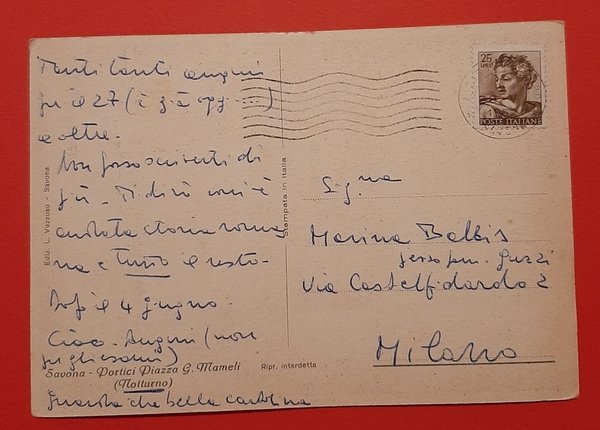 Tanti tanti auguri
per il 27 (è già oggi ...)
e oltre.
Non posso scriverti di
più. Ti dirò com'è
andata storia roma
na e tutto il resto.
Dopo il 4 giugno.
Ciao. Auguri (non
per gli esami)
Savona - Portici Piazza G. Mameli
(Notturno)
Guarda che bella cartolina
Ediz. L. Vazzoso - Savona
Stampata in Italia
Ripr. interdetta
25
LIRE
POSTE ITALIANE
Sig.na
Marina Balbis
presso pen.
Via Castelfidardo 2
Milano